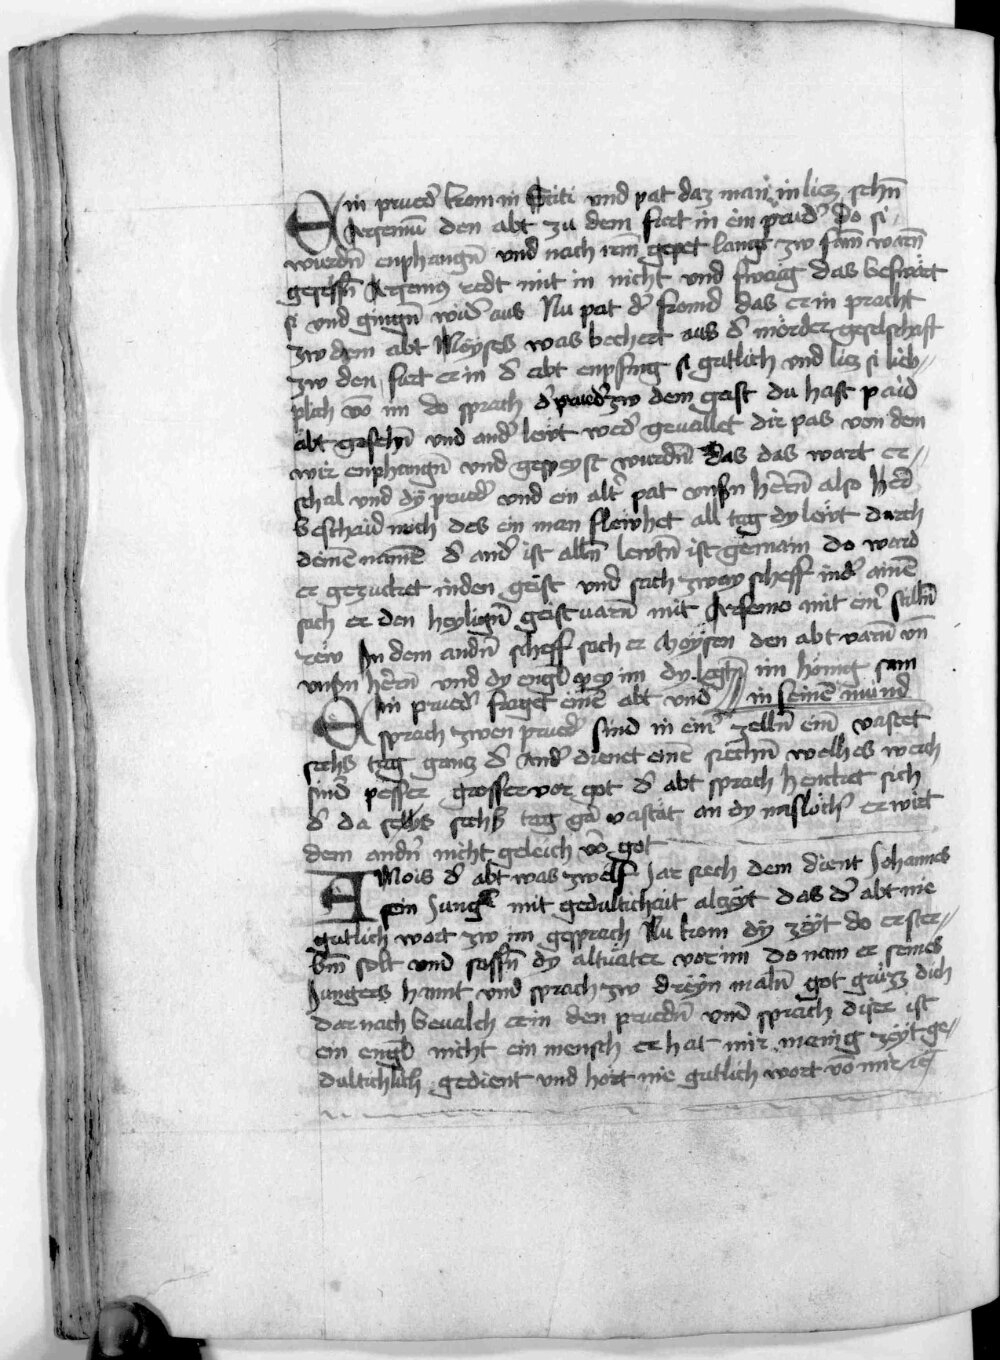 Ein prueder kom in Sciti und pat daz man in liez sehn̄
Arseniū den abt zu dem furt in ein prudˀ Do si
wurdn̄ enphangn̄ und nach irm̄ gepet lang zw sam̄ warn̄
gesessn̄ Arsenius redt mit in nicht und sweig das beswärt
si und gingn̄ widˀ aus Nu pat dˀ fromd das er in precht
zw dem abt Moyses was bechert aus dˀ mörder geselschaft
zw den furt er in dˀ abt enpfing si gutlich und liez si lieb//
plich vō im do sprach dˀ pruedˀ zw dem gast du hast paid
abt gesehn̄ und andˀ lewt wedˀ gevallet dir pas von dem
wir enphangn̄ und gespeyst wurdn̄ Das das wart er//
schal und dÿ pruedˀ und ein altˀ pat unsn̄ herrn̄ also herˀ
beschaid mich des ein man flewhet all tag dy lewt durch
deinē namē dˀ andˀ ist alln̄ lewtn̄ ist gemain do ward
er gezucket in den geist und sach zway scheff in dˀ ainē
sach er den heylign̄ geist varn̄ mit Arsenio mit einˀ stilln̄
rew In dem andn̄ scheff sach er Moÿsen den abt varn̄ vn̄
unsn̄ herrn̄ und dy engl̄ wey im dy legtn̄ im hönig sam
Ein pruedˀ fraget einē abt und // in seinē mund
sprach zwen pruedˀ sind in einˀ zelln̄ einˀ vastet
sechs tag gancz dˀ andˀ dienet einē siechn̄ welhes werch
sind pesser grosser vor got dˀ abt sprach hencket sich
dˀ da selbs sechs tag gā vastät an dy naslöchˀ er wirt
dem andn̄ nicht geleich vō got
AMois dˀ abt was zwelf Jar siech dem dient Johannes
sein Jungˀ mit gedultichait alczÿt das dˀ abt nie
gutlich wort zw im gesprach Nu kom dÿ zëyt do er ster//
bm̄ solt und sassn̄ dy altväter vor im do nam er seines
Jungers hannt und sprach zw dreÿn maln̄ got grüzz dich
dar nach bevalch er in den pruedn̄ und sprach diser ist
ein engl̄ nicht ein mensch er hat mir manig zëyt ge//
dultichlich gedient und hört nie gutlich wort vō mir